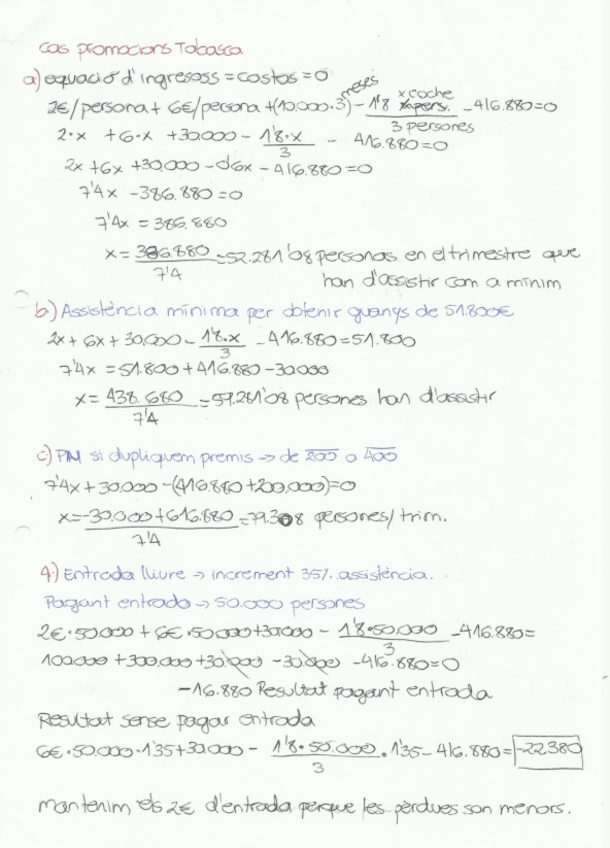 cas promocions Tobasca
a) equació d'ingresoss = costos = 0
2€/persona + 6€/persona + (10.000 · 3) meses - 1'8 x coche / 3 persones - 416.880 = 0
2·x + 6·x + 30.000 - 1'8·x / 3 - 416.880 = 0
2x + 6x + 30.000 - 0'6x - 416.880 = 0
7'4x - 386.880 = 0
7'4x = 386.880
x = 386.880 / 7'4 = 52.281'08 personas en el trimestre que
han d'assistir com a mínim
b.) Assistència mínima per obtenir guanys de 51.800€
2x + 6x + 30.000 - 1'8·x / 3 - 416.880 = 51.800
7'4x = 51.800 + 416.880 - 30.000
x = 438.680 / 7'4 = 59.281'08 persones han d'assistir
c) PM si dupliquem premis → de 200 a 400
7'4x + 30.000 - (416.880 + 200.000) = 0
x = -30.000 + 616.880 / 7'4 = 79.308 persones/trim.
4.) Entrada lliure → increment 35% assistència.
Pagant entrada → 50.000 persones
2€·50.000 + 6€·50.000 + 30.000 - 1'8·50.000 / 3 - 416.880 =
100.000 + 300.000 + 30.000 - 30.000 - 416.880 = 0
-16.880 Resultat pagant entrada
Resultat sense pagar entrada
6€·50.000·1'35 + 30.000 - 1'8·50.000 / 3 · 1'35 - 416.880 = -22.380
mantenim els 2€ d'entrada perque les pèrdues son menors.